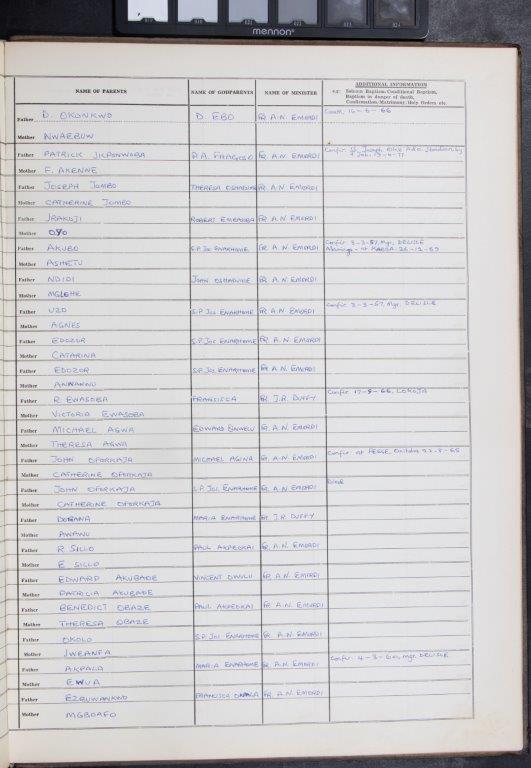 mennon
NAME OF PARENTS
NAME OF GODPARENTS
NAME OF MINISTER
ADDITIONAL INFORMATION
e.g: Solemn Baptism/Conditional Baptism,
Baptism in danger of death,
Confirmation/Matrimony/Holy Orders etc.
Father D. OKONKWO D. EBO FR A.N. EMORDI Confir. 16-6-66
Mother NWAEBUW
Father PATRICK P.A. FRAGOSO FR. A.N. EMORDI Confir.
Mother F. AKENNE
Father JOSEPH JOMBO THERESA FR A.N. EMORDI
Mother CATHERINE JOMBO
Father ROBERT FR A.N. EMORDI
Mother OYO
Father AKUBO S.P. JOE ENAKHOME FR A.N. EMORDI Confir 3-3-57, Mgr. DELISLE
Marriage at KABBA 26-12-69
Mother ASHETU
Father NDIDI JOHN FR A.N. EMORDI
Mother MGLEHE
Father UZO S.P. JOE ENAKHOME FR A.N. EMORDI Confir 3-3-57, Mgr. DELISLE
Mother AGNES
Father EDOZOR S.P. JOE ENAKHOME FR A.N. EMORDI
Mother CATARINA
Father EDOZOR S.P. JOE ENAKHOME FR A.N. EMORDI
Mother ANWANWU
Father R. EWASOBA FRANSISCA FR J.R. DUFFY Confir 17-9-66, LOKOJA
Mother VICTORIA EWASOBA
Father MICHAEL AGWA EDWARD FR. A.N. EMORDI
Mother THERESA AGWA
Father JOHN OFORKAJA MICHAEL AGINA FR. A.N. EMORDI Confir at FEGGE, Onitsha 22-8-65
Mother CATHERINE OFORKAJA
Father JOHN OFORKAJA S.P. JOE ENAKHOME FR A.N. EMORDI Died
Mother CATHERINE OFORKAJA
Father MARIA ENAKHOME FR J.R. DUFFY
Mother AWAWU
Father R. SILLO PAUL AKPEOKAI FR A.N. EMORDI
Mother E SILLO
Father EDWARD AKUBADE VINCENT OWULU FR A.N. EMORDI
Mother PATRICIA AKUBADE
Father BENEDICT OBAZE PAUL AKPEOKAI FR A.N. EMORDI
Mother THERESA OBAZE
Father OKOLO S.P. JOE ENAKHOME FR A.N. EMORDI
Mother IWEANFA
Father AKPALA MARIA ENAKHOME FR A.N. EMORDI Confir 4-3-60, Mgr. DELISLE
Mother EWUA
Father EZRUWANKWO FRANCISCA FR A.N. EMORDI
Mother MGBOAFO